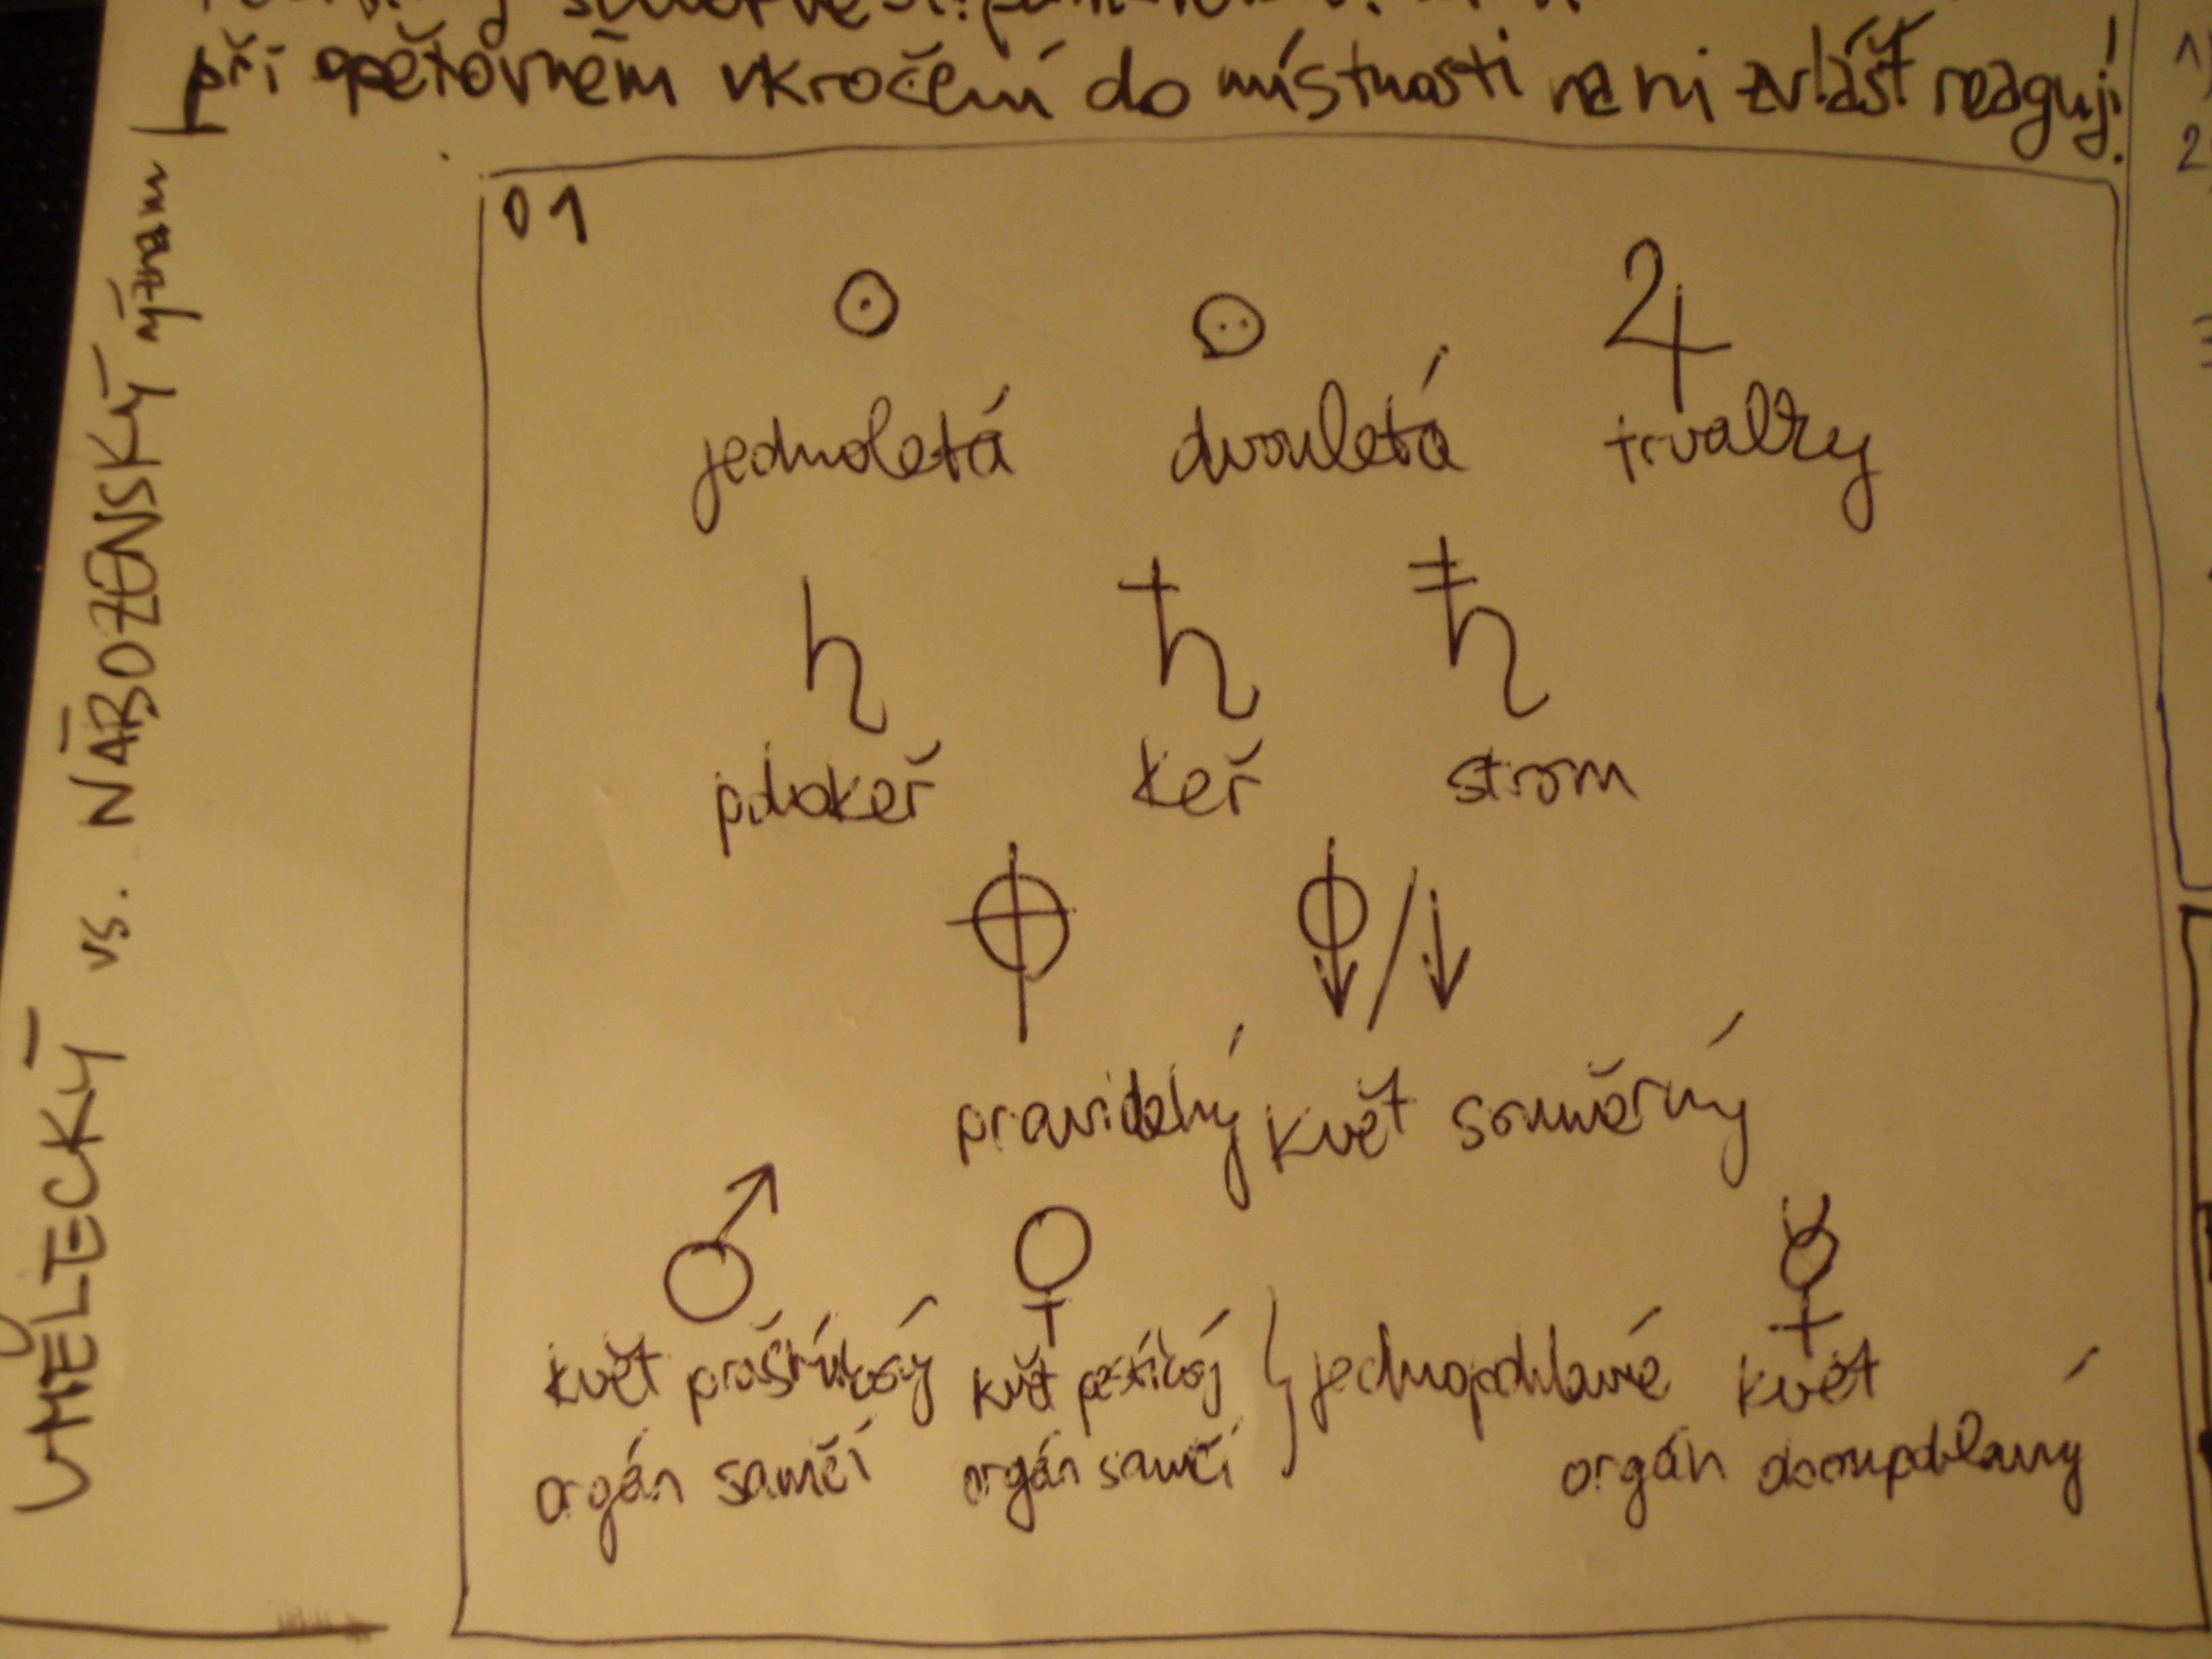 při opětovném vkročení do místnosti na ni zvlášť reagují.
UMĚLECKÝ vs. NÁBOŽENSKÝ význam
01
☉ ⚇ ♃
jednoletá dvouletá trvalky
polokeř keř strom
pravidelný květ souměrný
♂ ♀ ☿
květ prašníkový květ pestíkový } jednopohlavné květ
orgán samčí orgán samčí orgán dvoupohlavný
1)
2